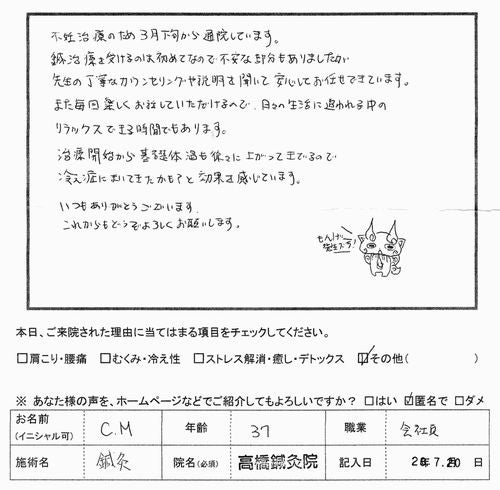 不妊治療のため3月下旬から通院しています。
鍼治療を受けるのは初めてなので不安な部分もありましたが
先生の丁寧なカウンセリングや説明を聞いて安心してお任せできています。
また毎回楽しくお話していただけるので、日々の生活に追われる中の
リラックスできる時間でもあります。
治療開始から基礎体温も徐々に上がってきているので
冷え症にきいてきたかも?と効果を感じています。
いつもありがとうございます。
これからもどうぞよろしくお願いします。
もんげ〜
先生ズラ!
本日、ご来院された理由に当てはまる項目をチェックしてください。
□肩こり・腰痛 □むくみ・冷え性 □ストレス解消・癒し・デトックス ☑その他( )
※ あなた様の声を、ホームページなどでご紹介してもよろしいですか? □はい ☑匿名で □ダメ
お名前 (イニシャル可) C.M 年齢 37 職業 会社員
施術名 鍼灸 院名(必須) 高橋鍼灸院 記入日 年7.20日